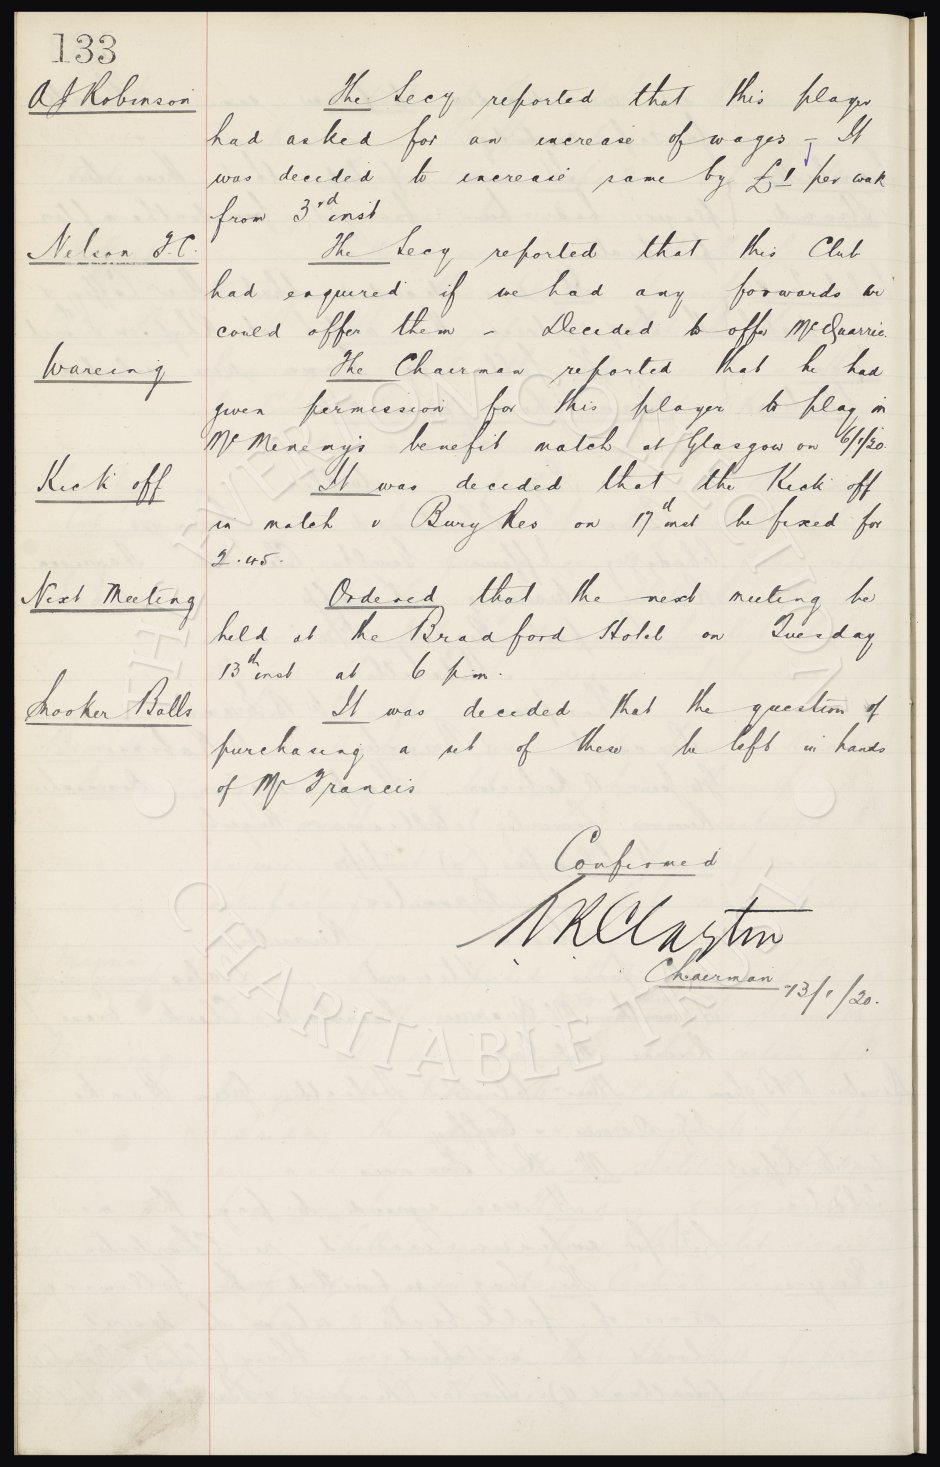 133
A J Robinson
The Secy reported that this player
had asked for an increase of wages - It
was decided to increase same by £1 per week
from 3rd inst
Nelson F.C.
The Secy reported that this Club
had enquired if we had any forwards we
could offer them - Decided to offer McQuarrie.
Wareing
The Chairman reported that he had
given permission for this player to play in
McMenemy's benefit match at Glasgow on 6/1/20.
Kick off
It was decided that the Kick off
in match v Bury Res on 17th inst be fixed for
2.45.
Next Meeting
Ordered that the next meeting be
held at the Bradford Hotel on Tuesday
13th inst at 6 p.m.
Snooker Balls
It was decided that the question of
purchasing a set of these be left in hands
of Mr Francis
Confirmed
Clayton
Chairman 13/1/20.
THE EVERTON COLLECTION
CHARITABLE TRUST